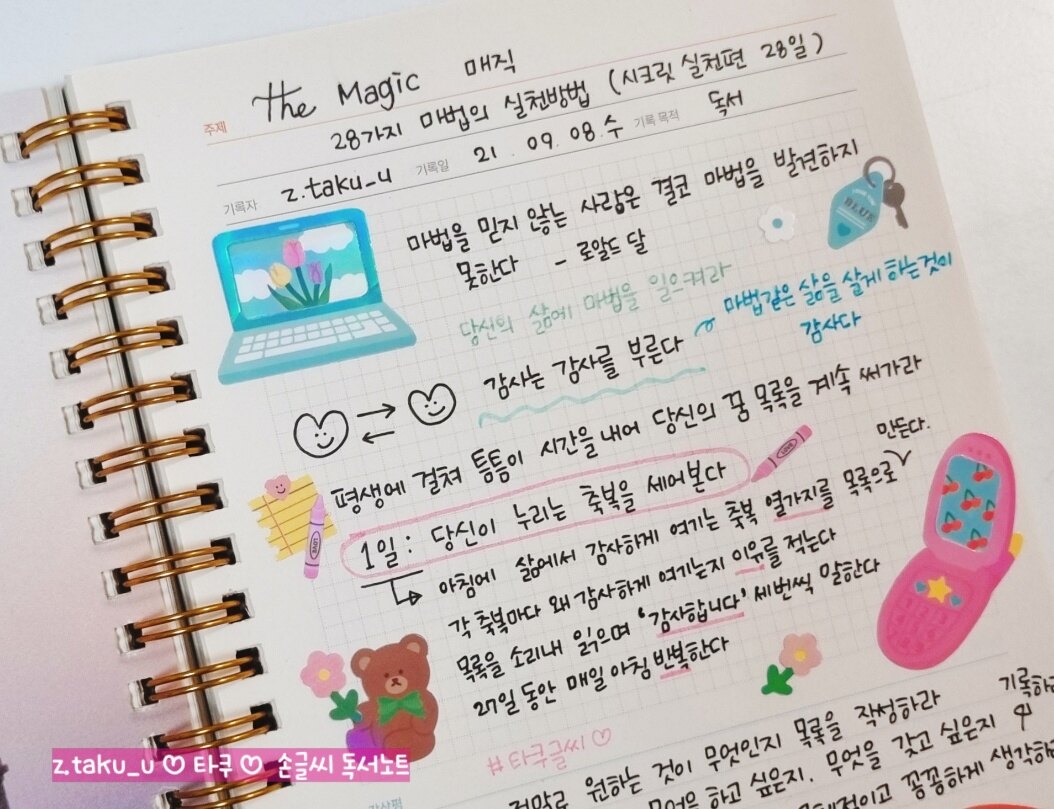 주제 the Magic 매직
28가지 마법의 실천방법 (시크릿 실천편 28일)
기록자 z.taku_u 기록일 21. 09. 08. 수 기록 목적 독서
마법을 믿지 않는 사람은 결코 마법을 발견하지
못한다 - 로알드 달
BLUE
당신의 삶에 마법을 일으켜라
마법같은 삶을 살게 하는것이
감사다
감사는 감사를 부른다
평생에 걸쳐 틈틈이 시간을 내어 당신의 꿈 목록을 계속 써가라
1일 : 당신이 누리는 축복을 세어본다
LOVE
LOVE
아침에 삶에서 감사하게 여기는 축복 열가지를 목록으로 만든다.
각 축복마다 왜 감사하게 여기는지 이유를 적는다
목록을 소리내 읽으며 '감사합니다' 세번씩 말한다
27일 동안 매일 아침 반복한다
#타쿠글씨♡
감상평
원하는 것이 무엇인지 목록을 작성하라 기록하
하고 싶은지. 무엇을 갖고 싶은지
꼼꼼하게 생각하
z.taku_u ♡ 타쿠 ♡ 손글씨 독서노트